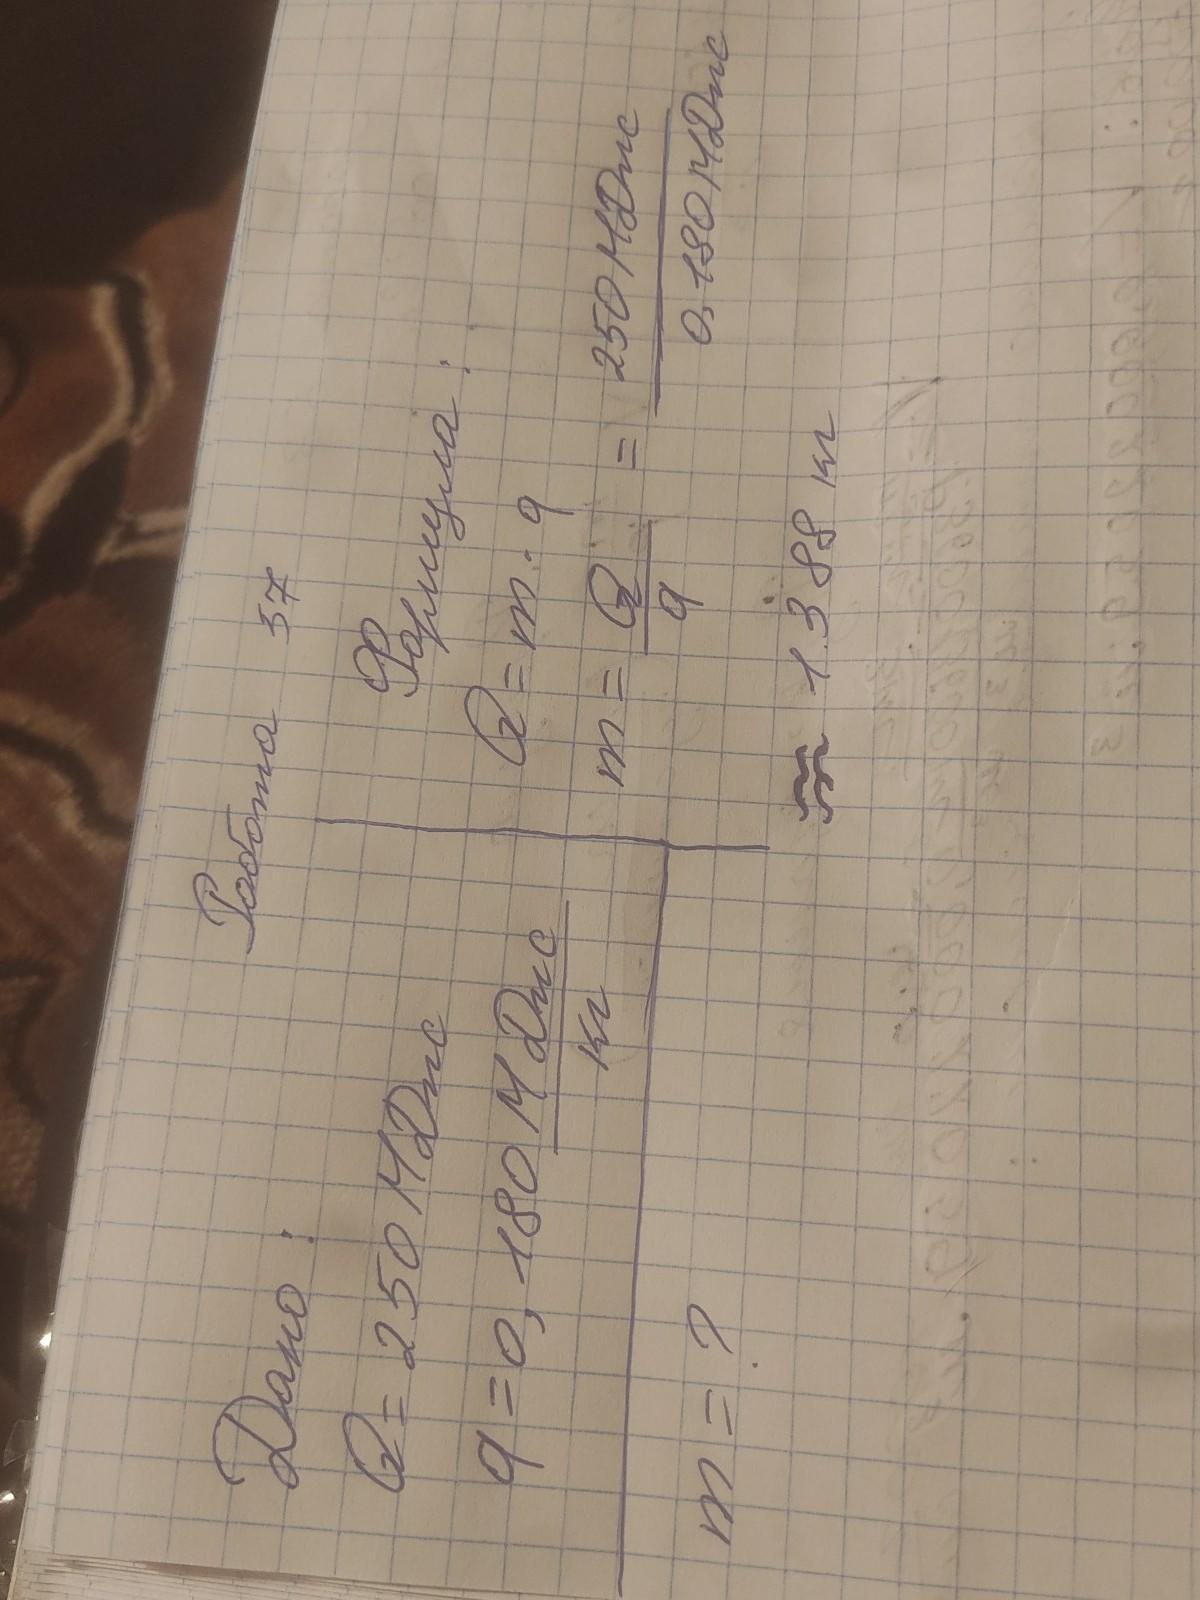 Работа 37
Дано:
Q = 250 МДж
q = 0,180 МДж
кг
m = ?
Формула:
Q = m · q
m = Q/q = 250 МДж / 0,180 МДж
≈ 1.388 кг